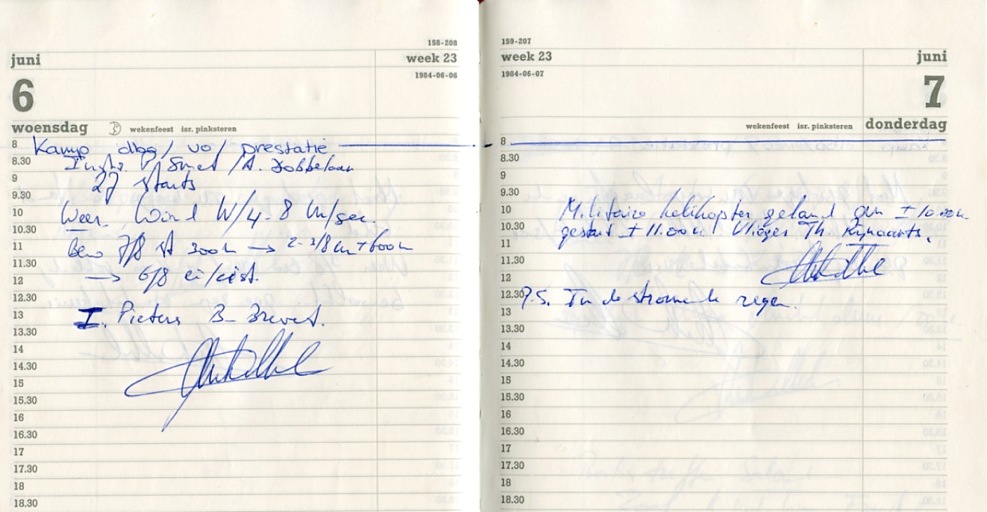 158-208
juni
week 23
1984-06-06
6
woensdag
wekenfeest isr. pinksteren
8
Kamp dbo/ vo/ prestatie
8.30
Instr. Smet /A. Dobbelaar
9
27 starts
9.30
10
Weer Wind W/4-8 m/sec.
10.30
11
7/8 st 300m → 2-3/8 cu ± 600m
11.30
→ 6/8 ci/cist.
12
12.30
13
I. Pieters B-Brevet.
13.30
14
14.30
15
15.30
16
16.30
17
17.30
18
18.30
159-207
week 23
juni
1984-06-07
7
wekenfeest isr. pinksteren
donderdag
8
8.30
9
9.30
10
Militaire helikopter geland om ± 10.00u
10.30
gestart ± 11.00u Vlieger Th. Rijnaarts.
11
11.30
12
12.30
P.S. In de stromende regen.
13
13.30
14
14.30
15
15.30
16
16.30
17
17.30
18
18.30